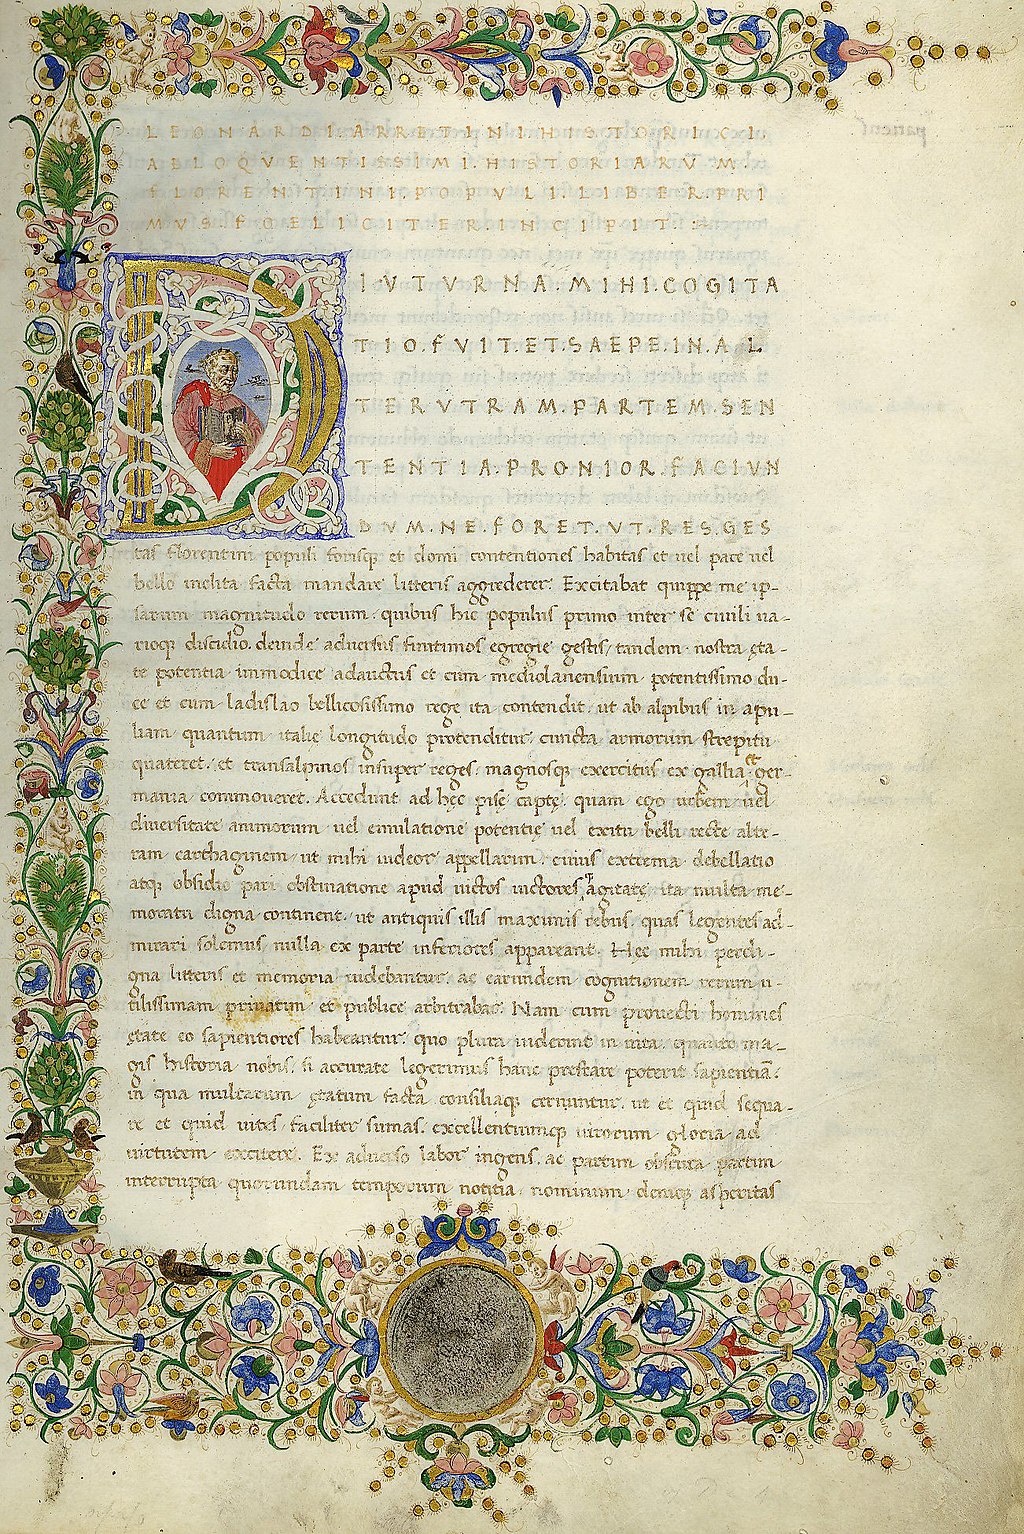 LEONARDI ARRETINI HISTORICI
AB ELOQVENTISSIMI HISTORIARVM
FLORENTINI POPVLI LIBER PRI
MVS FOELICITER INCIPIT
DIVTVRNA.MIHI.COGITA
TIO.FVIT ET.SAEPE.IN.AL
TERVTRAM.PARTEM.SEN
TENTIA.PRONIOR.FACIVN
DVM.NE.FORET.VT.RES.GES
tas florentini populi forisq; et domi contentiones habitas et uel pace uel
bello inclita facta mandare litteris aggrederer. Excitabat quippe me ip-
sarum magnitudo rerum. quibus hic populus primo inter se ciuili ua-
rioq; discidio. deinde aduersus finitimos egregie gestis/ tandem nostra ęta-
te potentia immodice adauctus et cum mediolanensium potentissimo du-
ce et cum ladislao bellicosissimo rege ita contendit. ut ab alpibus in apu-
liam quantum italie longitudo protenditur. cuncta armorum strepitu
quateret. et transalpinos insuper reges. magnosq; exercitus ex gallia et ger-
mania commoueret. Accedunt ad hęc pisę captę. quam ego urbem uel
diuersitate animorum uel emulatione potentię uel exitu belli recte alte-
ram carthaginem ut mihi uideor appellarim. cuius extrema debellatio
atq; obsidio pari obstinatione apud uictos uictoresq; agitatę ita multa me-
moratu digna continent. ut antiquis illis maximis rebus. quas legentes ad-
mirari solemus nulla ex parte inferiores appareant. Hec mihi perdi-
gna litteris et memoria uidebantur. ac earundem cognitionem rerum u-
tilissimam priuatim et publice arbitrabar. Nam cum prouecti homines
ętate eo sapientiores habeantur. quo plura uiderint in uita. quanto ma-
gis historia nobis. si accurate legerimus hanc prestare poterit sapientiā.
in qua multarum ętatum facta consiliaq; cernuntur. ut et quid sequa-
re et quid uites faciliter sumas. excellentiumq; uirorum gloria ad
uirtutem excitere. Ex aduerso labor ingens. ac partim obscura partim
interrupta quorundam temporum notitia. nominum deniq; asperitas